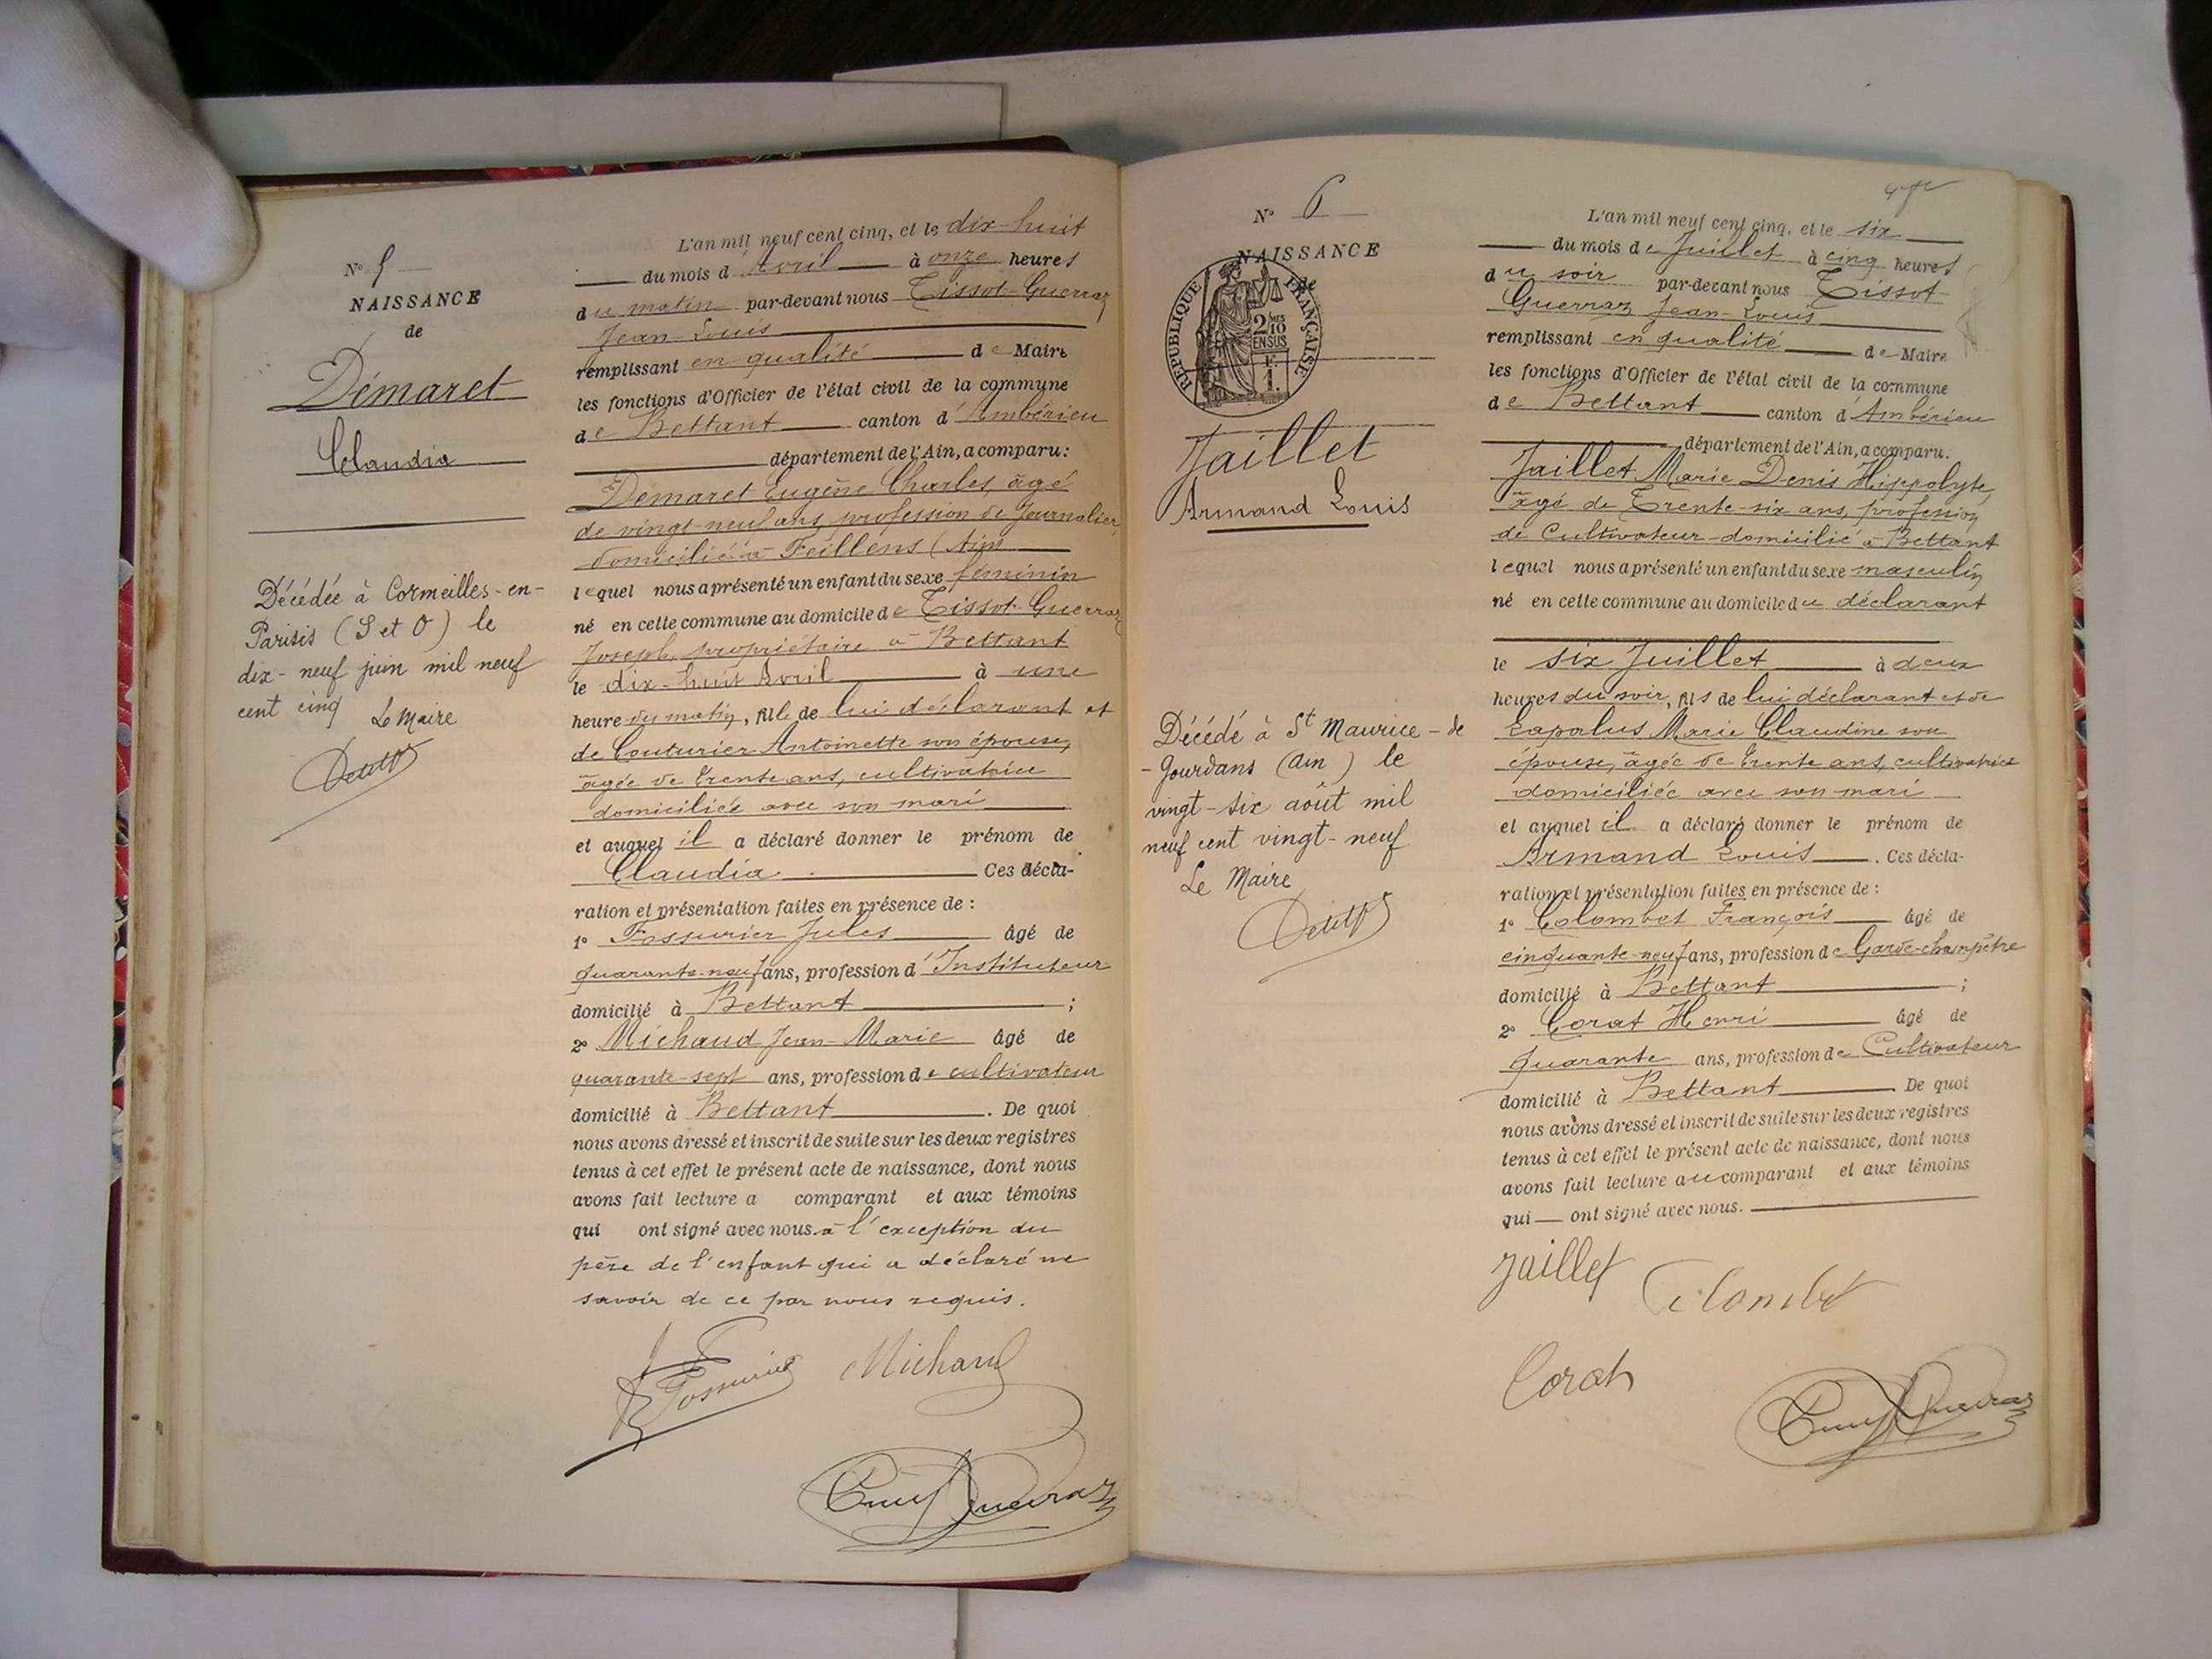 N° 5
NAISSANCE
de
Démaret
Claudia
Décédée à Cormeilles-en-
Parisis (S et O) le
dix-neuf juin mil neuf
cent cinq Le Maire
L'an mil neuf cent cinq, et le dix-huit
du mois d'Avril à onze heures
du matin par-devant nous Tissot-Guerraz
Jean-Louis
remplissant en qualité de Maire
les fonctions d'Officier de l'état civil de la commune
de Bettant canton d'Ambérieu
département de l'Ain, a comparu:
Démaret Eugène Charles, âgé
de vingt-neuf ans, profession de Journalier,
domicilié à Feillens (Ain)
lequel nous a présenté un enfant du sexe féminin
né en cette commune au domicile de Tissot-Guerraz
Joseph, propriétaire à Bettant
le dix-huit Avril à une
heure du matin, fille de lui déclarant et
de Couturier Antoinette son épouse,
âgée de trente ans, cultivatrice
domiciliée avec son mari
et auquel il a déclaré donner le prénom de
Claudia. Ces décla-
ration et présentation faites en présence de :
1° Fossurier Jules âgé de
quarante-neuf ans, profession d'Instituteur
domicilié à Bettant ;
2° Michaud Jean-Marie âgé de
quarante-sept ans, profession de cultivateur
domicilié à Bettant. De quoi
nous avons dressé et inscrit de suite sur les deux registres
tenus à cet effet le présent acte de naissance, dont nous
avons fait lecture a comparant et aux témoins
qui ont signé avec nous à l'exception du
père de l'enfant qui a déclaré ne
savoir de ce par nous requis.
Fossurier Michaud
N° 6
NAISSANCE
de
REPUBLIQUE FRANÇAISE
2/10 MES
EN SUS
F.
1.
Jaillet
Armand Louis
Décédé à St Maurice-de
-Gourdans (Ain) le
vingt-six août mil
neuf cent vingt-neuf
Le Maire
L'an mil neuf cent cinq, et le six
du mois de Juillet à cinq heures
du soir par-devant nous Tissot
Guerraz Jean-Louis
remplissant en qualité de Maire
les fonctions d'Officier de l'état civil de la commune
de Bettant canton d'Ambérieu
département de l'Ain, a comparu.
Jaillet Marie Denis Hippolyte,
âgé de Trente-six ans, profession
de Cultivateur domicilié à Bettant
lequel nous a présenté un enfant du sexe masculin
né en cette commune au domicile du déclarant
le six Juillet à deux
heures du soir, fils de lui déclarant et de
Lapalus Marie Claudine son
épouse, âgée de trente ans, cultivatrice
domiciliée avec son mari
et auquel il a déclaré donner le prénom de
Armand Louis. Ces décla-
ration et présentation faites en présence de :
1° Colombet François âgé de
cinquante-neuf ans, profession de Garde-champêtre
domicilié à Bettant ;
2° Corat Henri âgé de
quarante ans, profession de Cultivateur
domicilié à Bettant. De quoi
nous avons dressé et inscrit de suite sur les deux registres
tenus à cet effet le présent acte de naissance, dont nous
avons fait lecture au comparant et aux témoins
qui ont signé avec nous.
Jaillet Colombet
Corat